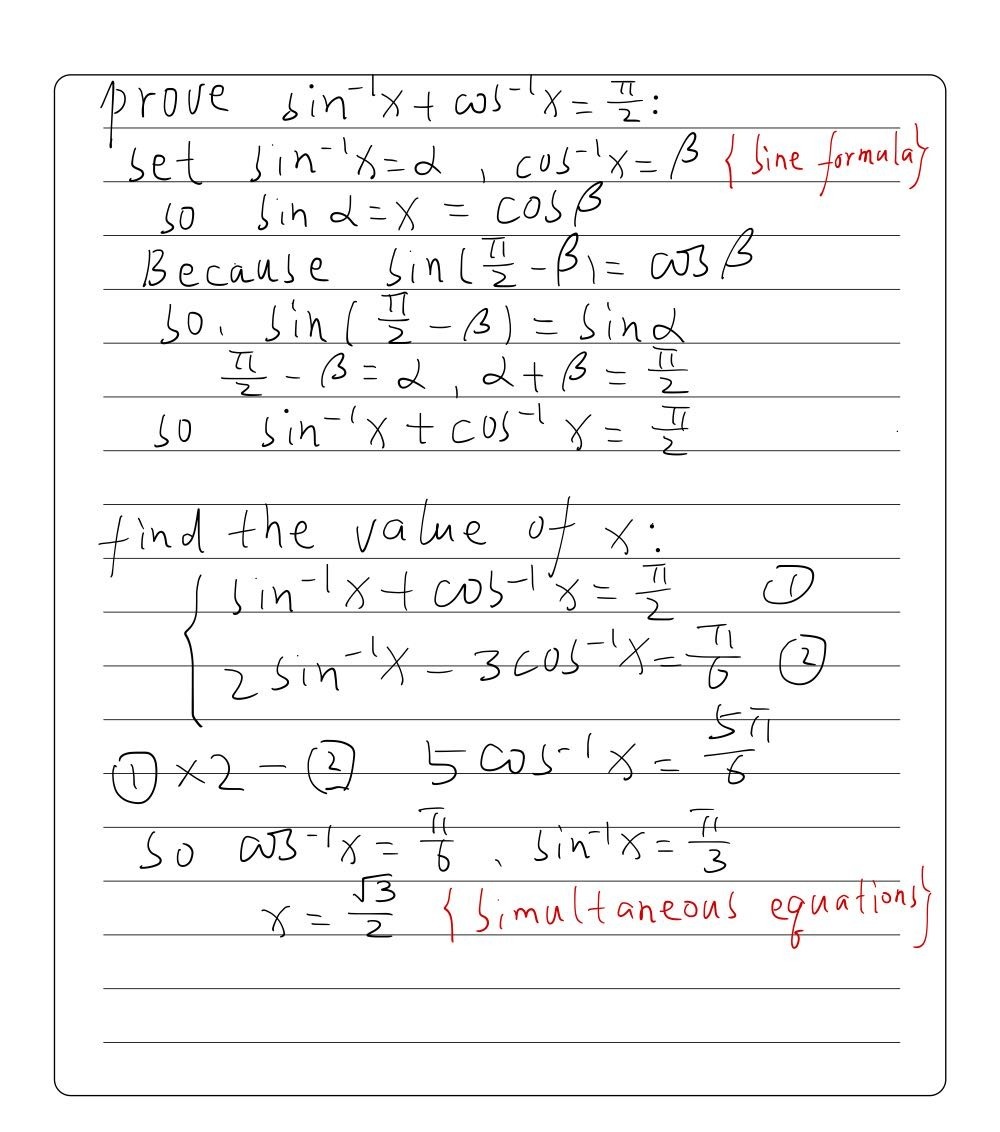 prove sin⁻¹x + cos⁻¹x = π/2 :
set sin⁻¹x = α , cos⁻¹x = β {sine formula}
so sin α = x = cos β
Because sin(π/2 - β) = cos β
so. sin(π/2 - β) = sin α
π/2 - β = α , α + β = π/2
so sin⁻¹x + cos⁻¹x = π/2
find the value of x :
{ sin⁻¹x + cos⁻¹x = π/2 ①
2 sin⁻¹x - 3 cos⁻¹x = π/6 ②
① × 2 - ② 5 cos⁻¹x = 5π/6
so cos⁻¹x = π/6 、 sin⁻¹x = π/3
x = √3/2 {simultaneous equations}